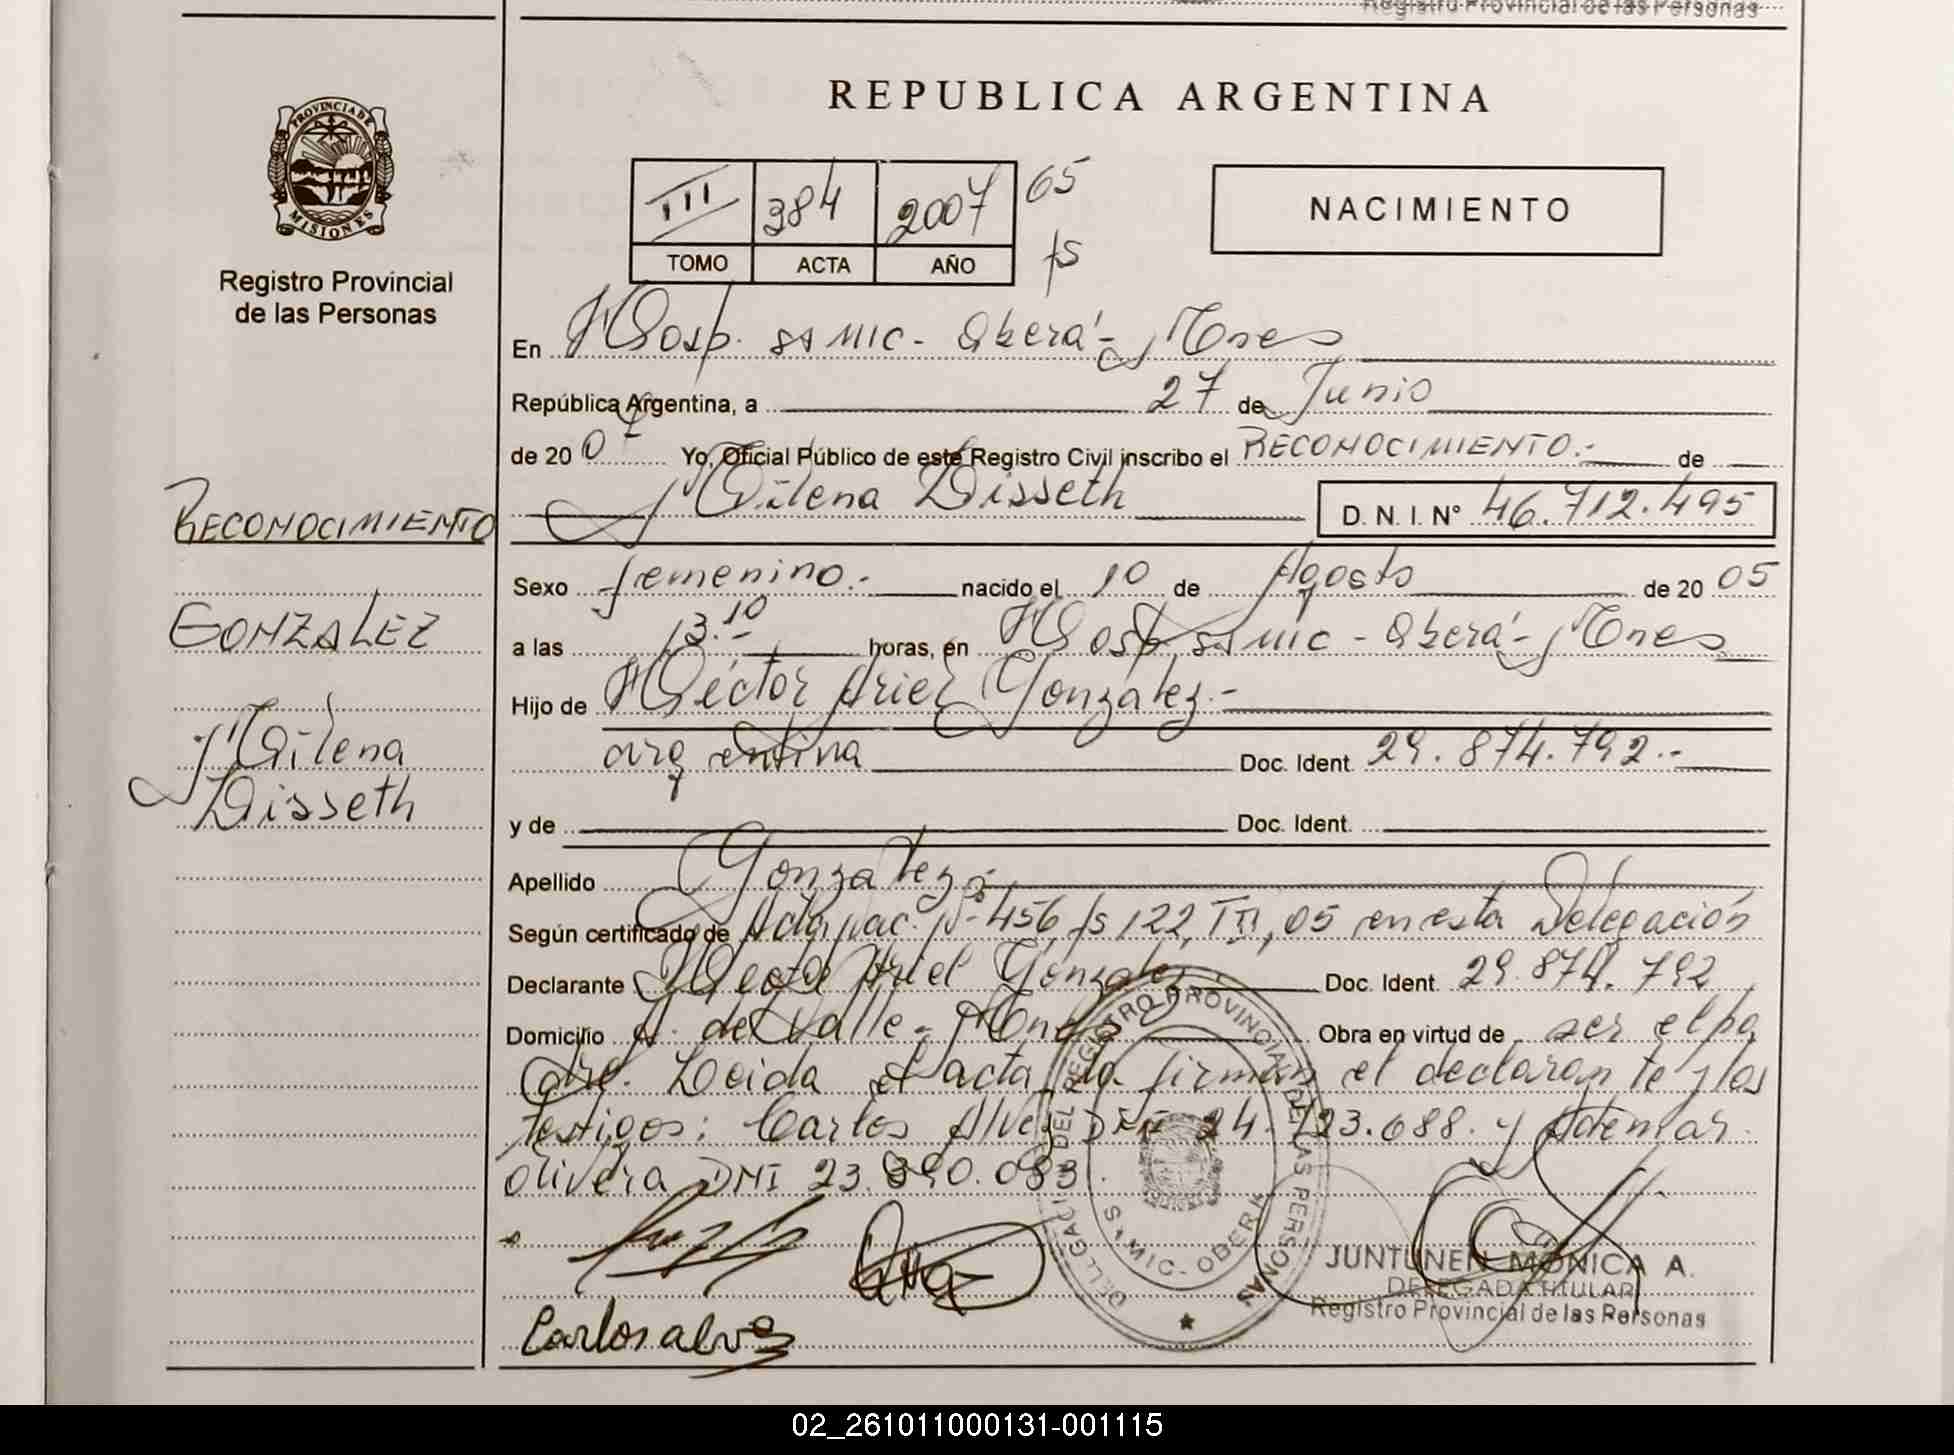 Registro Provincial de las Personas
REPUBLICA ARGENTINA
PROVINCIA DE
MISIONES
Registro Provincial
de las Personas
III 384 2007 65
TOMO ACTA AÑO fs
NACIMIENTO
En Hosp. SAMIC - Oberá - Mnes
República Argentina, a 27 de Junio
de 2007 Yo, Oficial Público de este Registro Civil inscribo el RECONOCIMIENTO.- de
Milena Lisseth D. N. I. N° 46.712.495
RECONOCIMIENTO
GONZALEZ
Milena
Lisseth
Sexo femenino.- nacido el 10 de Agosto de 2005
a las 13.10 horas, en Hosp. SAMIC - Oberá - Mnes
Hijo de Héctor Ariel Gonzalez.-
argentina Doc. Ident. 29.874.792.-
y de Doc. Ident.
Apellido Gonzalez.-
Según certificado de Acta nac. Nº 456, fs 122, T III, 05 en esta Delegación
Declarante Hector Ariel Gonzalez Doc. Ident. 29.874.792
Domicilio A. del Valle - Mnes Obra en virtud de ser el pa
dre. Leida el acta la firman el declarante y los
testigos: Carlos Alvez DNI 24.723.688. y Ademar
Olivera DNI 23.890.083.
DELEGACION DEL REGISTRO PROVINCIAL DE LAS PERSONAS
SAMIC - OBERA
Carlos alvez
JUNTUNEN MONICA A.
DELEGADA TITULAR
Registro Provincial de las Personas
02_261011000131-001115